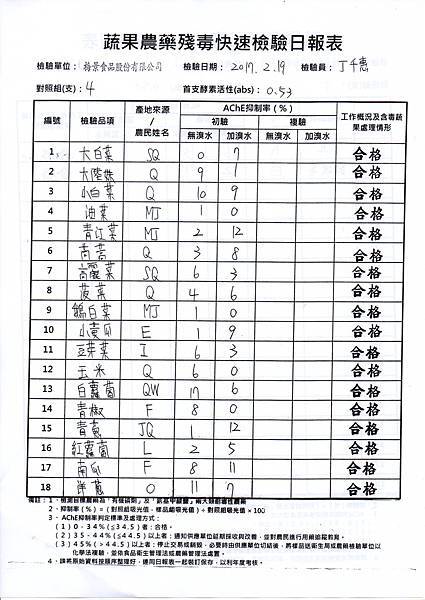 蔬果農藥殘毒快速檢驗日報表
檢驗單位： 梅景食品股份有限公司 檢驗日期： 2017.2.19 檢驗員： 丁千惠
對照組(支)：4 首支酵素活性(abs)： 0.53
編號 檢驗品項 產地來源/農民姓名 AChE抑制率(%) 工作概況及含毒蔬果處理情形
初驗 複驗
無溴水 加溴水 無溴水 加溴水
1 大白菜 SQ 0 7 合格
2 大陸妹 Q 9 1 合格
3 小白菜 Q 10 9 合格
4 油菜 MJ 1 0 合格
5 青江菜 MJ 2 12 合格
6 茼蒿 Q 3 8 合格
7 高麗菜 SQ 6 3 合格
8 菠菜 Q 4 6 合格
9 鵝白菜 MJ 1 0 合格
10 小黃瓜 E 1 9 合格
11 豆芽菜 I 6 3 合格
12 玉米 Q 6 0 合格
13 白蘿蔔 QW 17 6 合格
14 青椒 F 8 0 合格
15 青蔥 JQ 1 12 合格
16 紅蘿蔔 L 2 5 合格
17 南瓜 F 8 11 合格
18 洋蔥 O 11 7 合格
備註：1、檢測目標農藥為「有機磷劑」及「氨基甲酸鹽」兩大類超毒性農藥
2、抑制率(%)＝(對照組吸光值－樣品組吸光值)÷對照組吸光值×100
3、AChE抑制率判定標準及處理方式：
(1)0-34%(≦34.5)者：合格。
(2)35-44%(≦44.5)以上者：通知供應單位延期採收與改善，並對農民進行用藥追蹤教育。
(3)45%(＞44.5)以上者：停止交易或銷毀，必要時由供應單位切結後，將樣品送衛生局或農藥檢驗單位以
化學法複驗，並依食品衛生管理法或農藥管理法處置。
4、請將原始資料按順序整理好，連同日報表一起裝訂保存，以利年度考核。